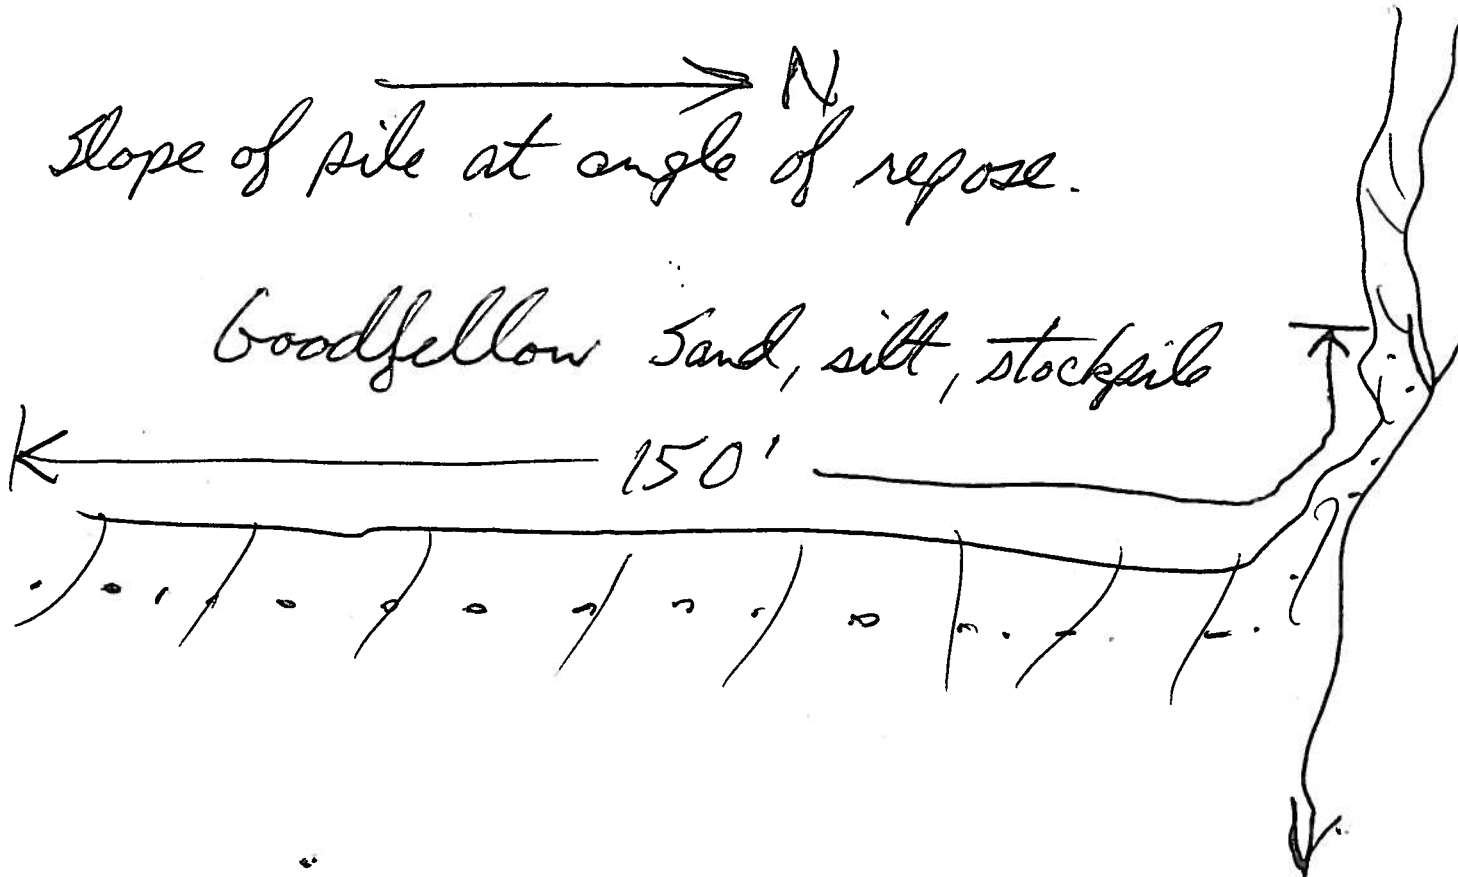 N
Slope of pile at angle of repose.
Goodfellow Sand, silt, stockpile
150'